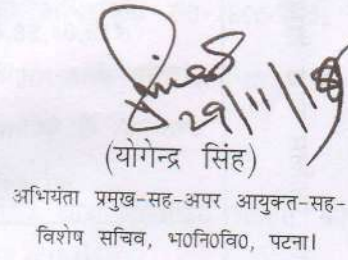 29/11/18
(योगेन्द्र सिंह)
अभियंता प्रमुख-सह-अपर आयुक्त-सह-
विशेष सचिव, भ0नि0वि0, पटना।